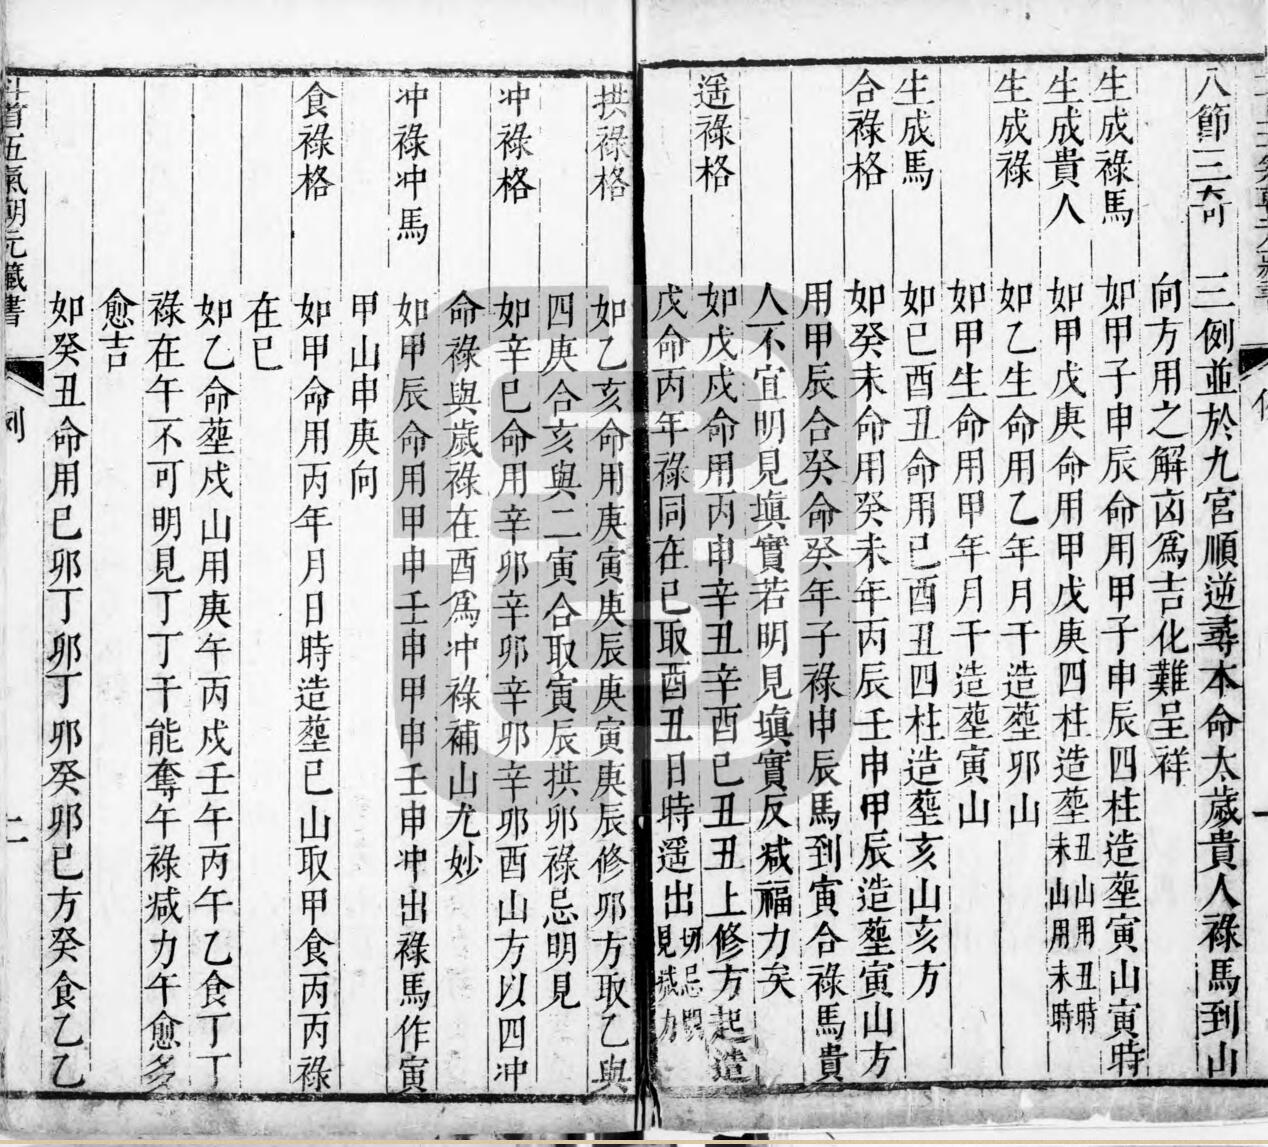 八節三奇　三例並於九宮順逆尋本命太歲貴人祿馬到山
向方用之解凶爲吉化難呈祥
生成祿馬　如甲子申辰命用甲子申辰四柱造塟寅山寅時
生成貴人　如甲戊庚命用甲戊庚四柱造塟丑山用丑時未山用未時
生成祿　如乙生命用乙年月干造塟卯山
如甲生命用甲年月干造塟寅山
生成馬　如巳酉丑命用巳酉丑四柱造塟亥山亥方
合祿格　如癸未命用癸未年丙辰壬申甲辰造塟寅山方
用甲辰合癸命癸年子祿申辰馬到寅合祿馬貴
人不宜明見塡實若明見塡實反减福力矣
遥祿格　如戊戌命用丙申辛丑辛酉己丑丑上修方起造
戊命丙年祿同在巳取酉丑日時遥出切忌明見减力
拱祿格　如乙亥命用庚寅庚辰庚寅庚辰修卯方取乙與
四庚合亥與二寅合取寅辰拱卯祿忌明見
冲祿格　如辛巳命用辛卯辛卯辛卯辛卯酉山方以四冲
命祿與歲祿在酉爲冲祿補山尤妙
冲祿冲馬　如甲辰命用甲申壬申甲申壬申冲出祿馬作寅
甲山申庚向
食祿格　如甲命用丙年月日時造塟巳山取甲食丙丙祿
在巳
如乙命塟戌山用庚午丙戌壬午丙午乙食丁丁
祿在午不可明見丁丁干能奪午祿减力午愈多
愈吉
如癸丑命用己卯丁卯丁卯癸卯巳方癸食乙乙
五氣朝元藏書　例　二